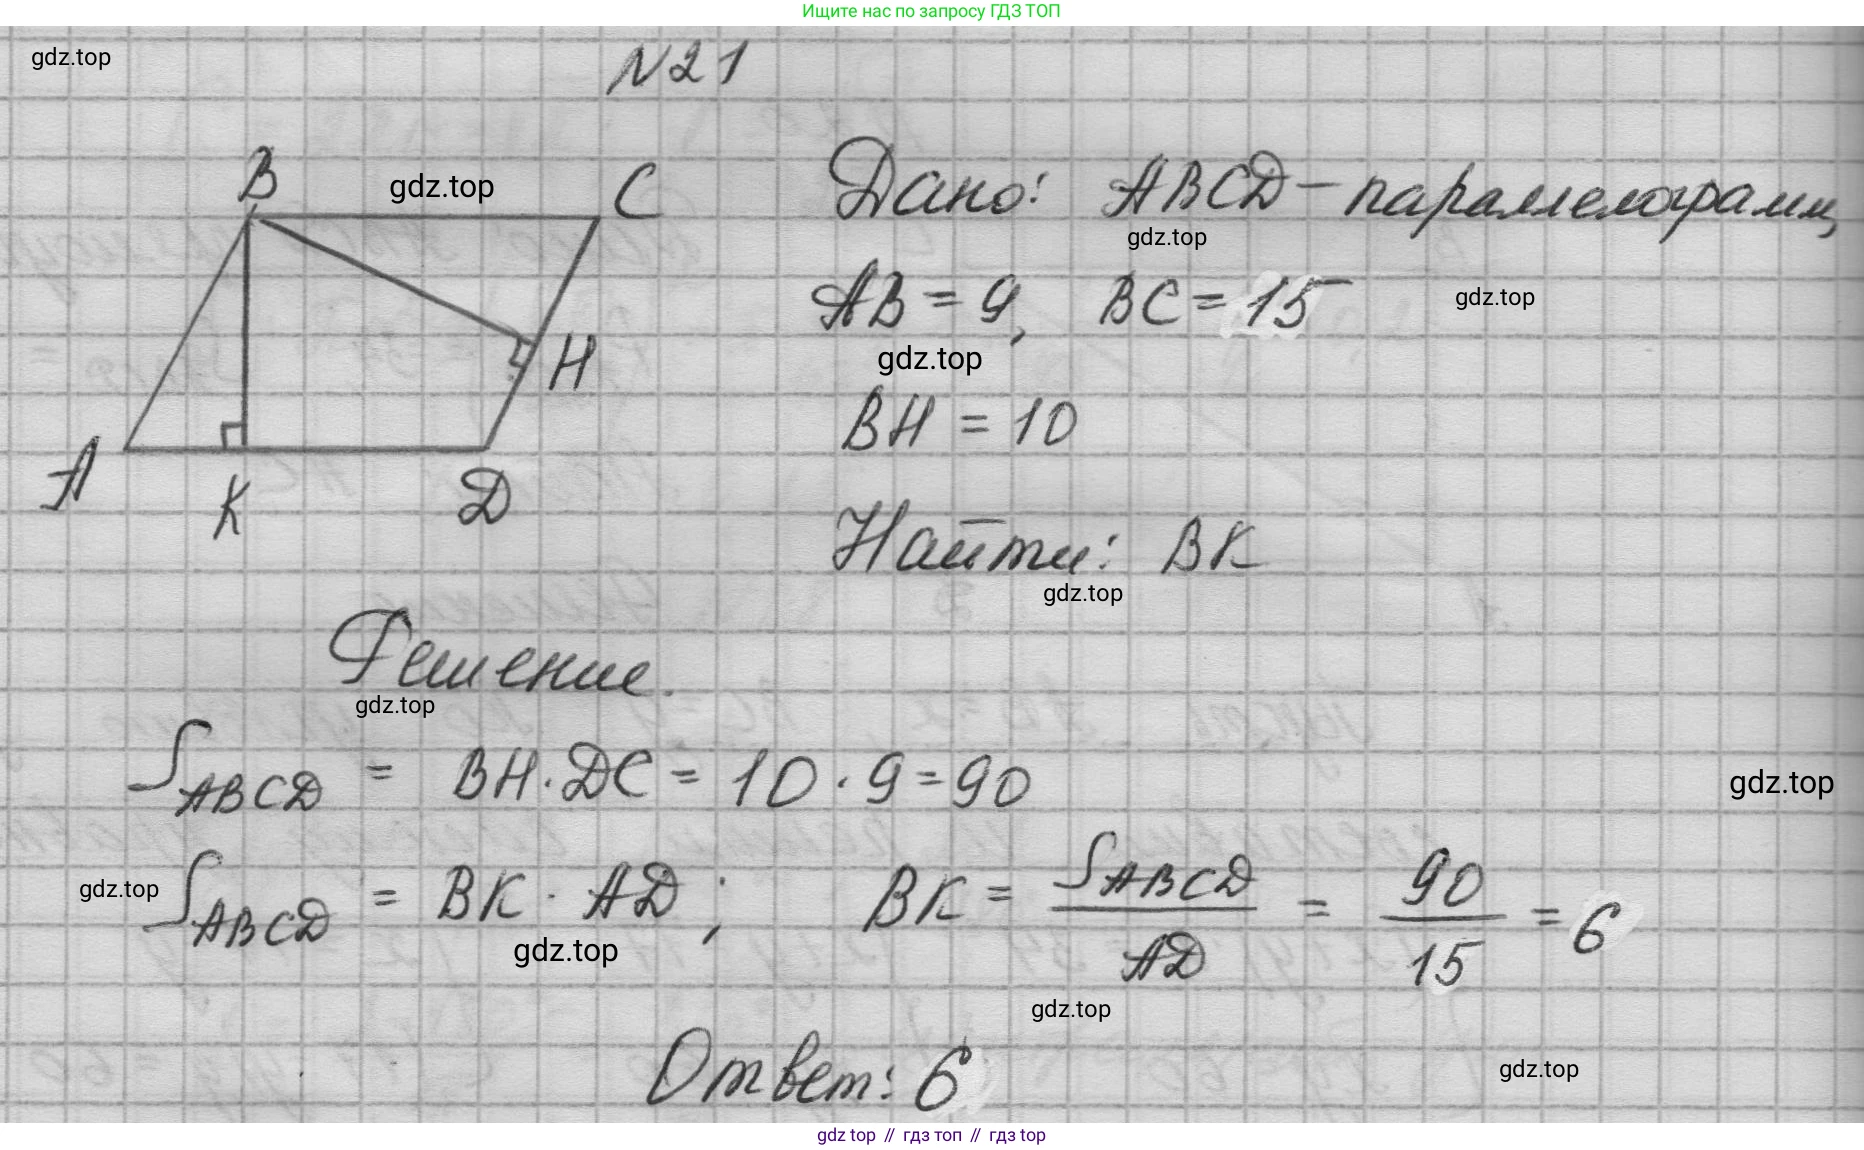 Ищите нас по запросу ГДЗ ТОП
gdz.top
N21
B
gdz.top
C
Дано: ABCD - параллелограмм,
gdz.top
AB = 9, BC = 15
gdz.top
gdz.top
H
BH = 10
A
K
D
Найти: BK
gdz.top
Решение.
gdz.top
S ABCD = BH · DC = 10 · 9 = 90
gdz.top
S ABCD = BK · AD; BK = S ABCD / AD = 90 / 15 = 6
gdz.top
gdz.top
gdz.top
Ответ: 6
gdz.top
gdz top // гдз топ // гдз top